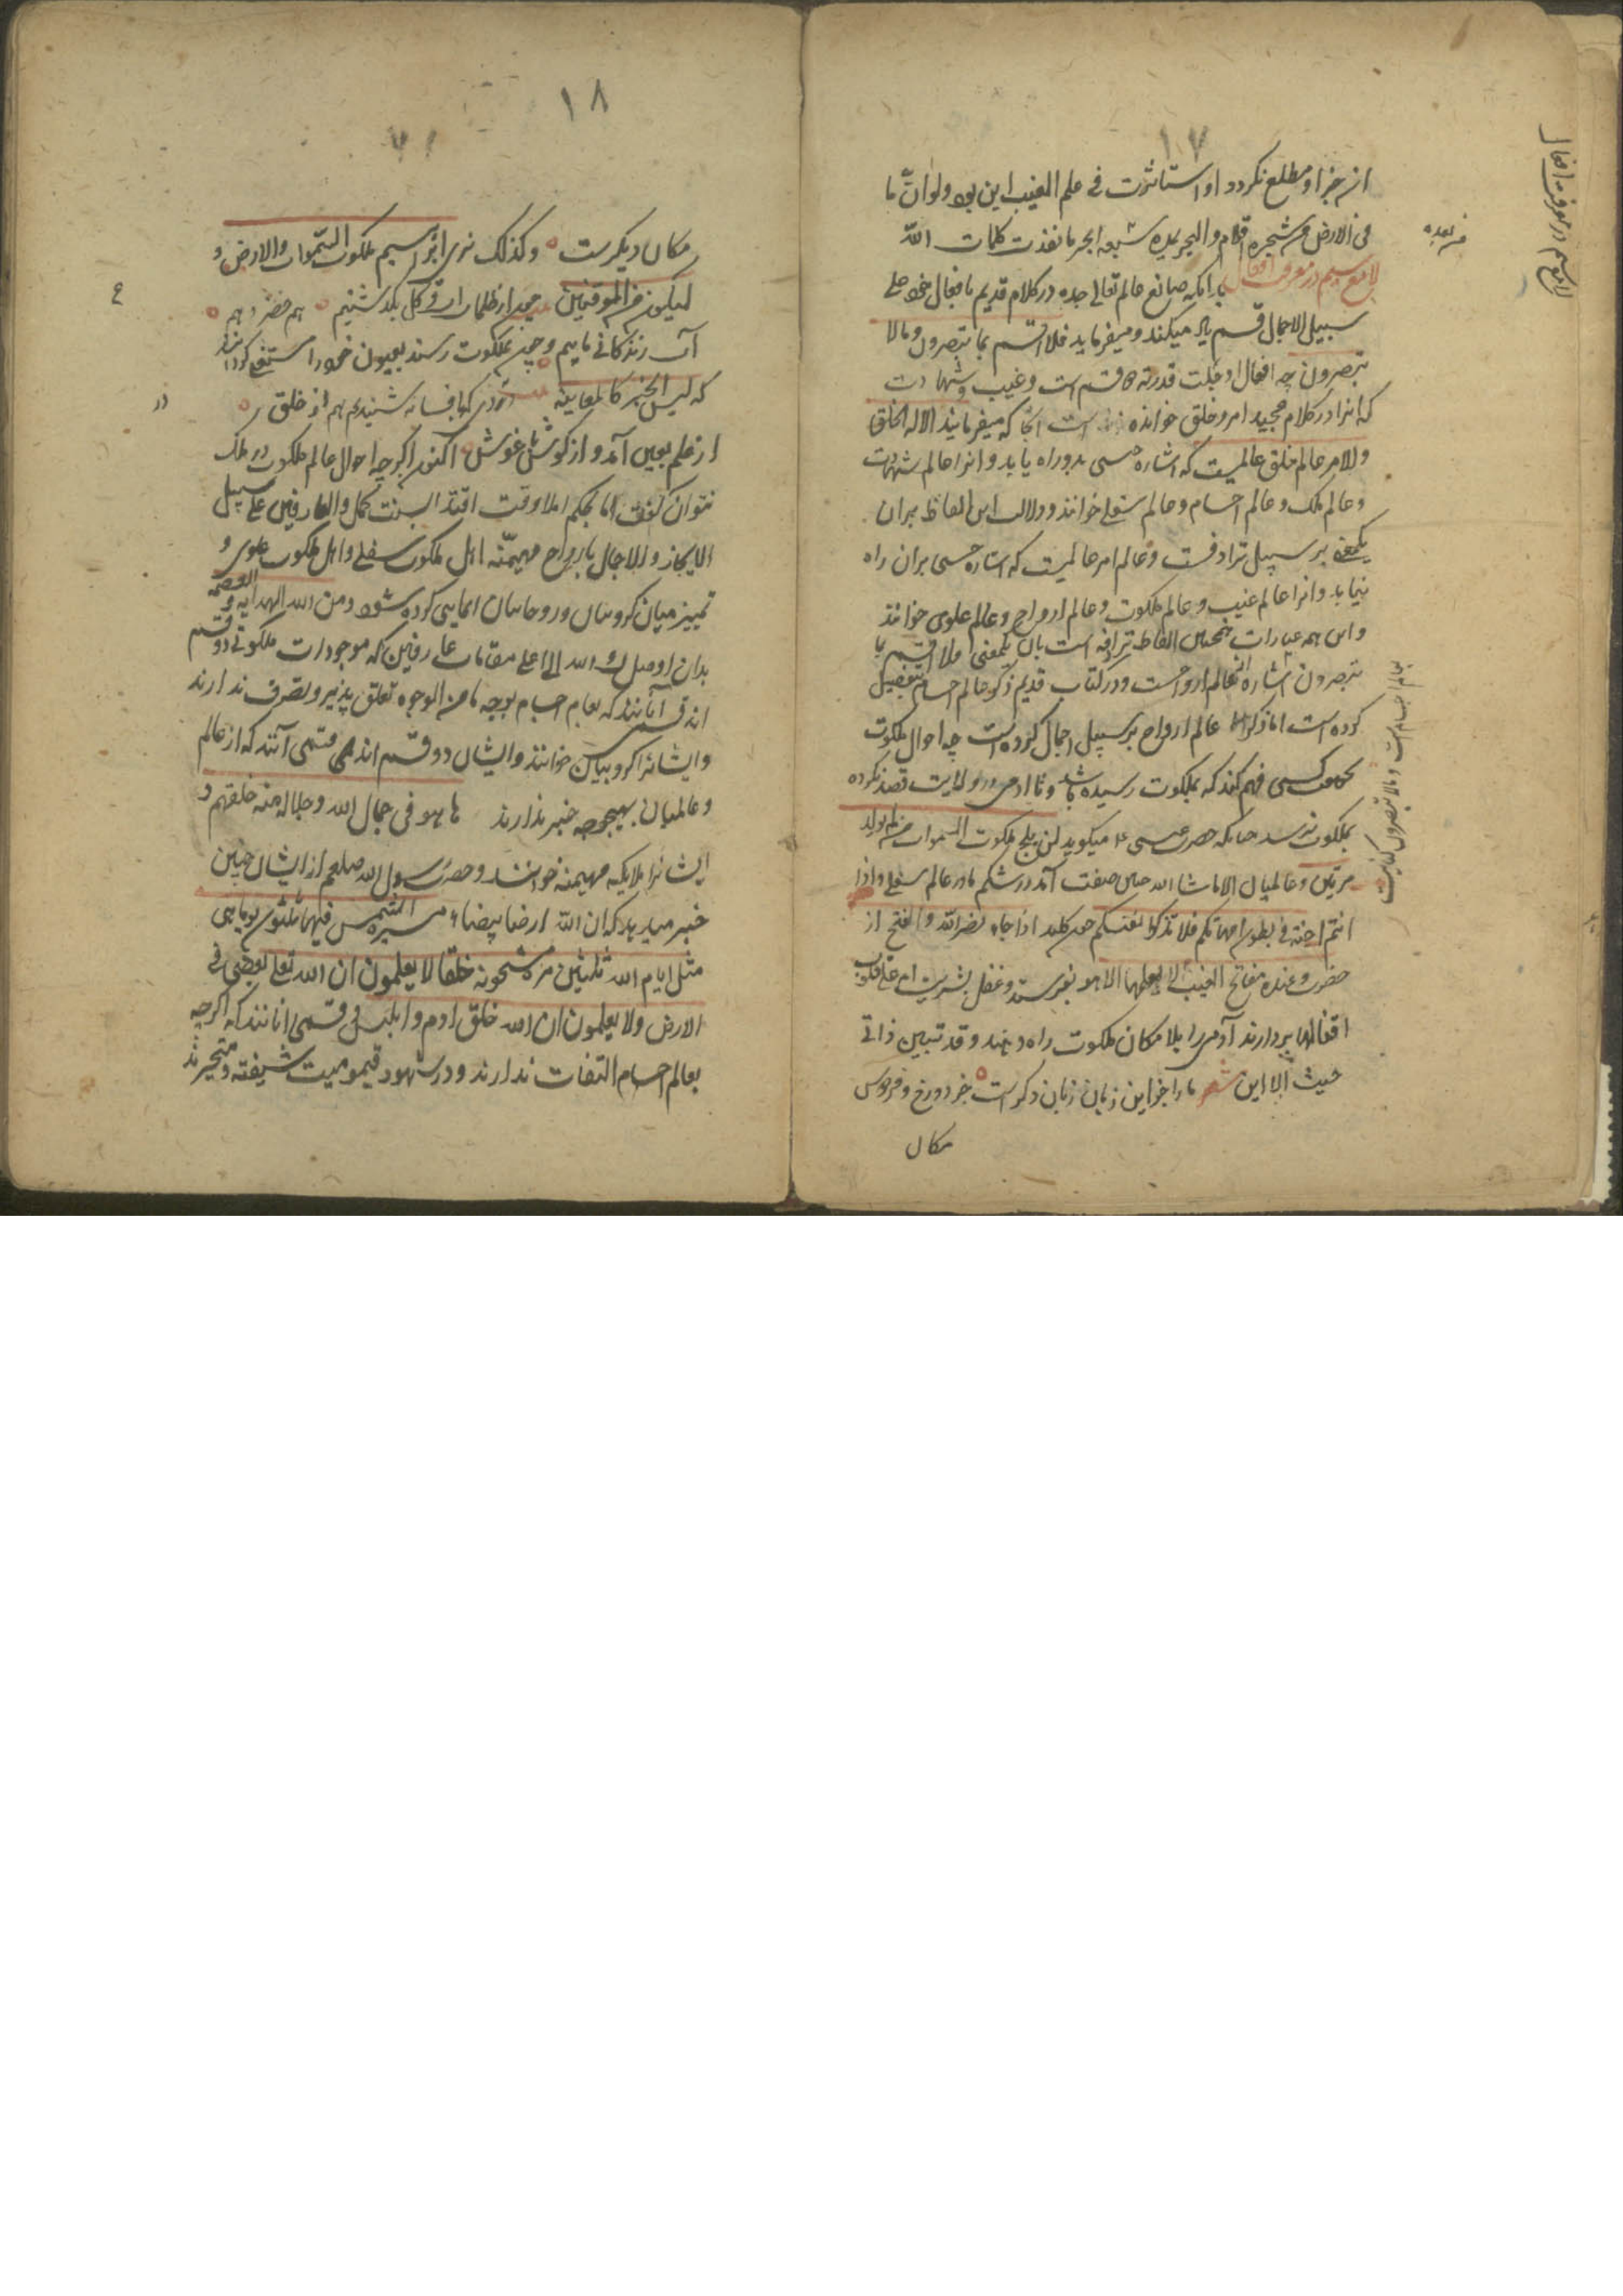 ۱۷
از جز او مطلع نگردد او استاثرت فی علم الغیب این بود ولو انّ ما
فی الارض من شجره اقلام والبحر یمده سبعه ابحر ما نفذت کلمات اللّه
من بعده
لامع سیم در معرفت افعال
لامع سیم در معرفت افعال بدانکه صانع عالم تعالی جده در کلام قدیم بافعال خود علی
سبیل الاجمال قسم یاد میکند و میفرماید فلا اقسم بما تبصرون و مالا
تبصرون چه افعال او جلت قدرته دو قسم است وغیب و شهادت
که انرا در کلام مجید امر و خلق خوانده است انجا که میفرماید الا له الخلق
والامر عالم خلق عالمیست که اشاره حسی بدو راه یابد و انرا عالم شهادت
و عالم ملک و عالم اجسام و عالم سفلی خوانند و دلالت این الفاظ بران
یکمعنی بر سبیل ترادفست و عالم امر عالمیست که اشاره حسی بران راه
نیابد وانرا عالم غیب و عالم ملکوت و عالم ارواح و عالم علوی خوانند
و این همه عبارات همچنین الفاظ مترادفه است بان یکمعنی فلا اقسم بما
تبصرون اشاره بعالم ارواحست و در کتاب قدیم ذکر عالم اجسام بتفصیل
بعالم اجسام است و مالا تبصرون کنایت
کرده است اما ذکر عالم ارواح بر سبیل اجمال کرده است چه احوال ملکوت
کسی فهم کند که بملکوت رسیده باشد و تا ادمی در ولایت قصد نکرده
بملکوت نرسد چنانکه حضرت عیسی ع میگوید لن یلج ملکوت السموات من لم یولد
مرتین و عالمیان الا ماشا الله صفت اند در شکم مادر عالم سفلی و اذا
انتم اجنة فی بطون امهاتکم فلا تزکوا انفسکم چون کلید اذا جاء نصر اللّه والفتح از
حضرت و عنده مفاتح الغیب لا یعلمها الا هو بفرستد و قفل بشریت ام علی قلوب
اقفالها بردارند آدمی را بلا مکان ملکوت راه دهند و قد تبیین ذاتی
حیث الا این شعر ما را جز این زبان زبان دکر است جز دوزخ و فردوس
مکان
۱۸
مکان دیکرست وکذلک نری ابراهیم ملکوت السّموات والارض و
لیکون من الموقنین چون از ظلمات ارقی کل بکذشتیم هم خضر و هم
آب زندکانی ماییم و چون بملکوت رسند بعیون خود را مستغرق
که لیس الخبر کالمعاینه بافسانه شنیدیم هم از خلق
از علم بعین آمد و از کوش باغوش اکنون اکرچه احوال عالم ملکوت در ملک
نتوان کفت اما بحکم املا وقت اقتدا لسنت کمل والعارفین علی سبیل
الایجاز والاجمال بارواح مهیمّنه اهل ملکوت سفلی و اهل ملکوت علوی و
تمییز میان کروبیان و روحانیان ایمایی کرده شود و من الله الهدایه و
العصمه
بدان اوصلک الله الی اعلی مقامات عارفین که موجودات ملکوتی دو قسم
اند قسمی آنانند که بعالم اجسام بوجه ما من الوجوه تعلق پذیر و تصرف ندارند
وایشانرا کروبیان خوانند وایشان دو قسم اند قسمی آنند که از عالم
و عالمیان بهیچوجه خبر ندارند هاهو فی جمال الله و جلاله منذ خلقهم و
ایشانرا ملایکه مهیمنه خوانند و حضرت رسول الله صلعم از ایشان چنین
خبر میدهد که ان اللّه ارضا بیضاء مسیرة الشمس فیها ثلثون یوما هی
مثل ایام الله ثلثین مرة مشحونه خلقا لا یعلمون ان الله تعالی یعصی فی
الارض ولا یعلمون ان الله خلق ادم و ابلیس و قسمی انانند که اگرچه
بعالم اجسام التفات ندارند و در شهود قیمومیت شیفته و متحیرند